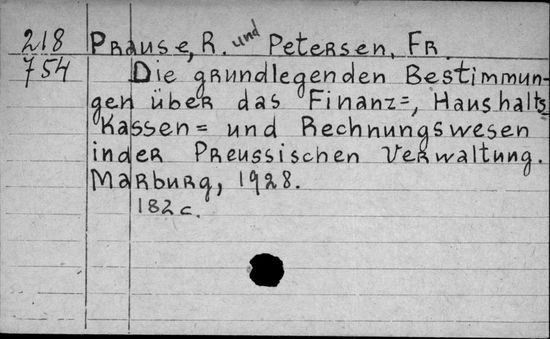 218 Prause, R. und Petersen, Fr.
754 Die grundlegenden Bestimmun-
gen über das Finanz=, Haushalts
Kassen= und Rechnungswesen
in der Preussischen Verwaltung.
Marburg, 1928.
182 c.